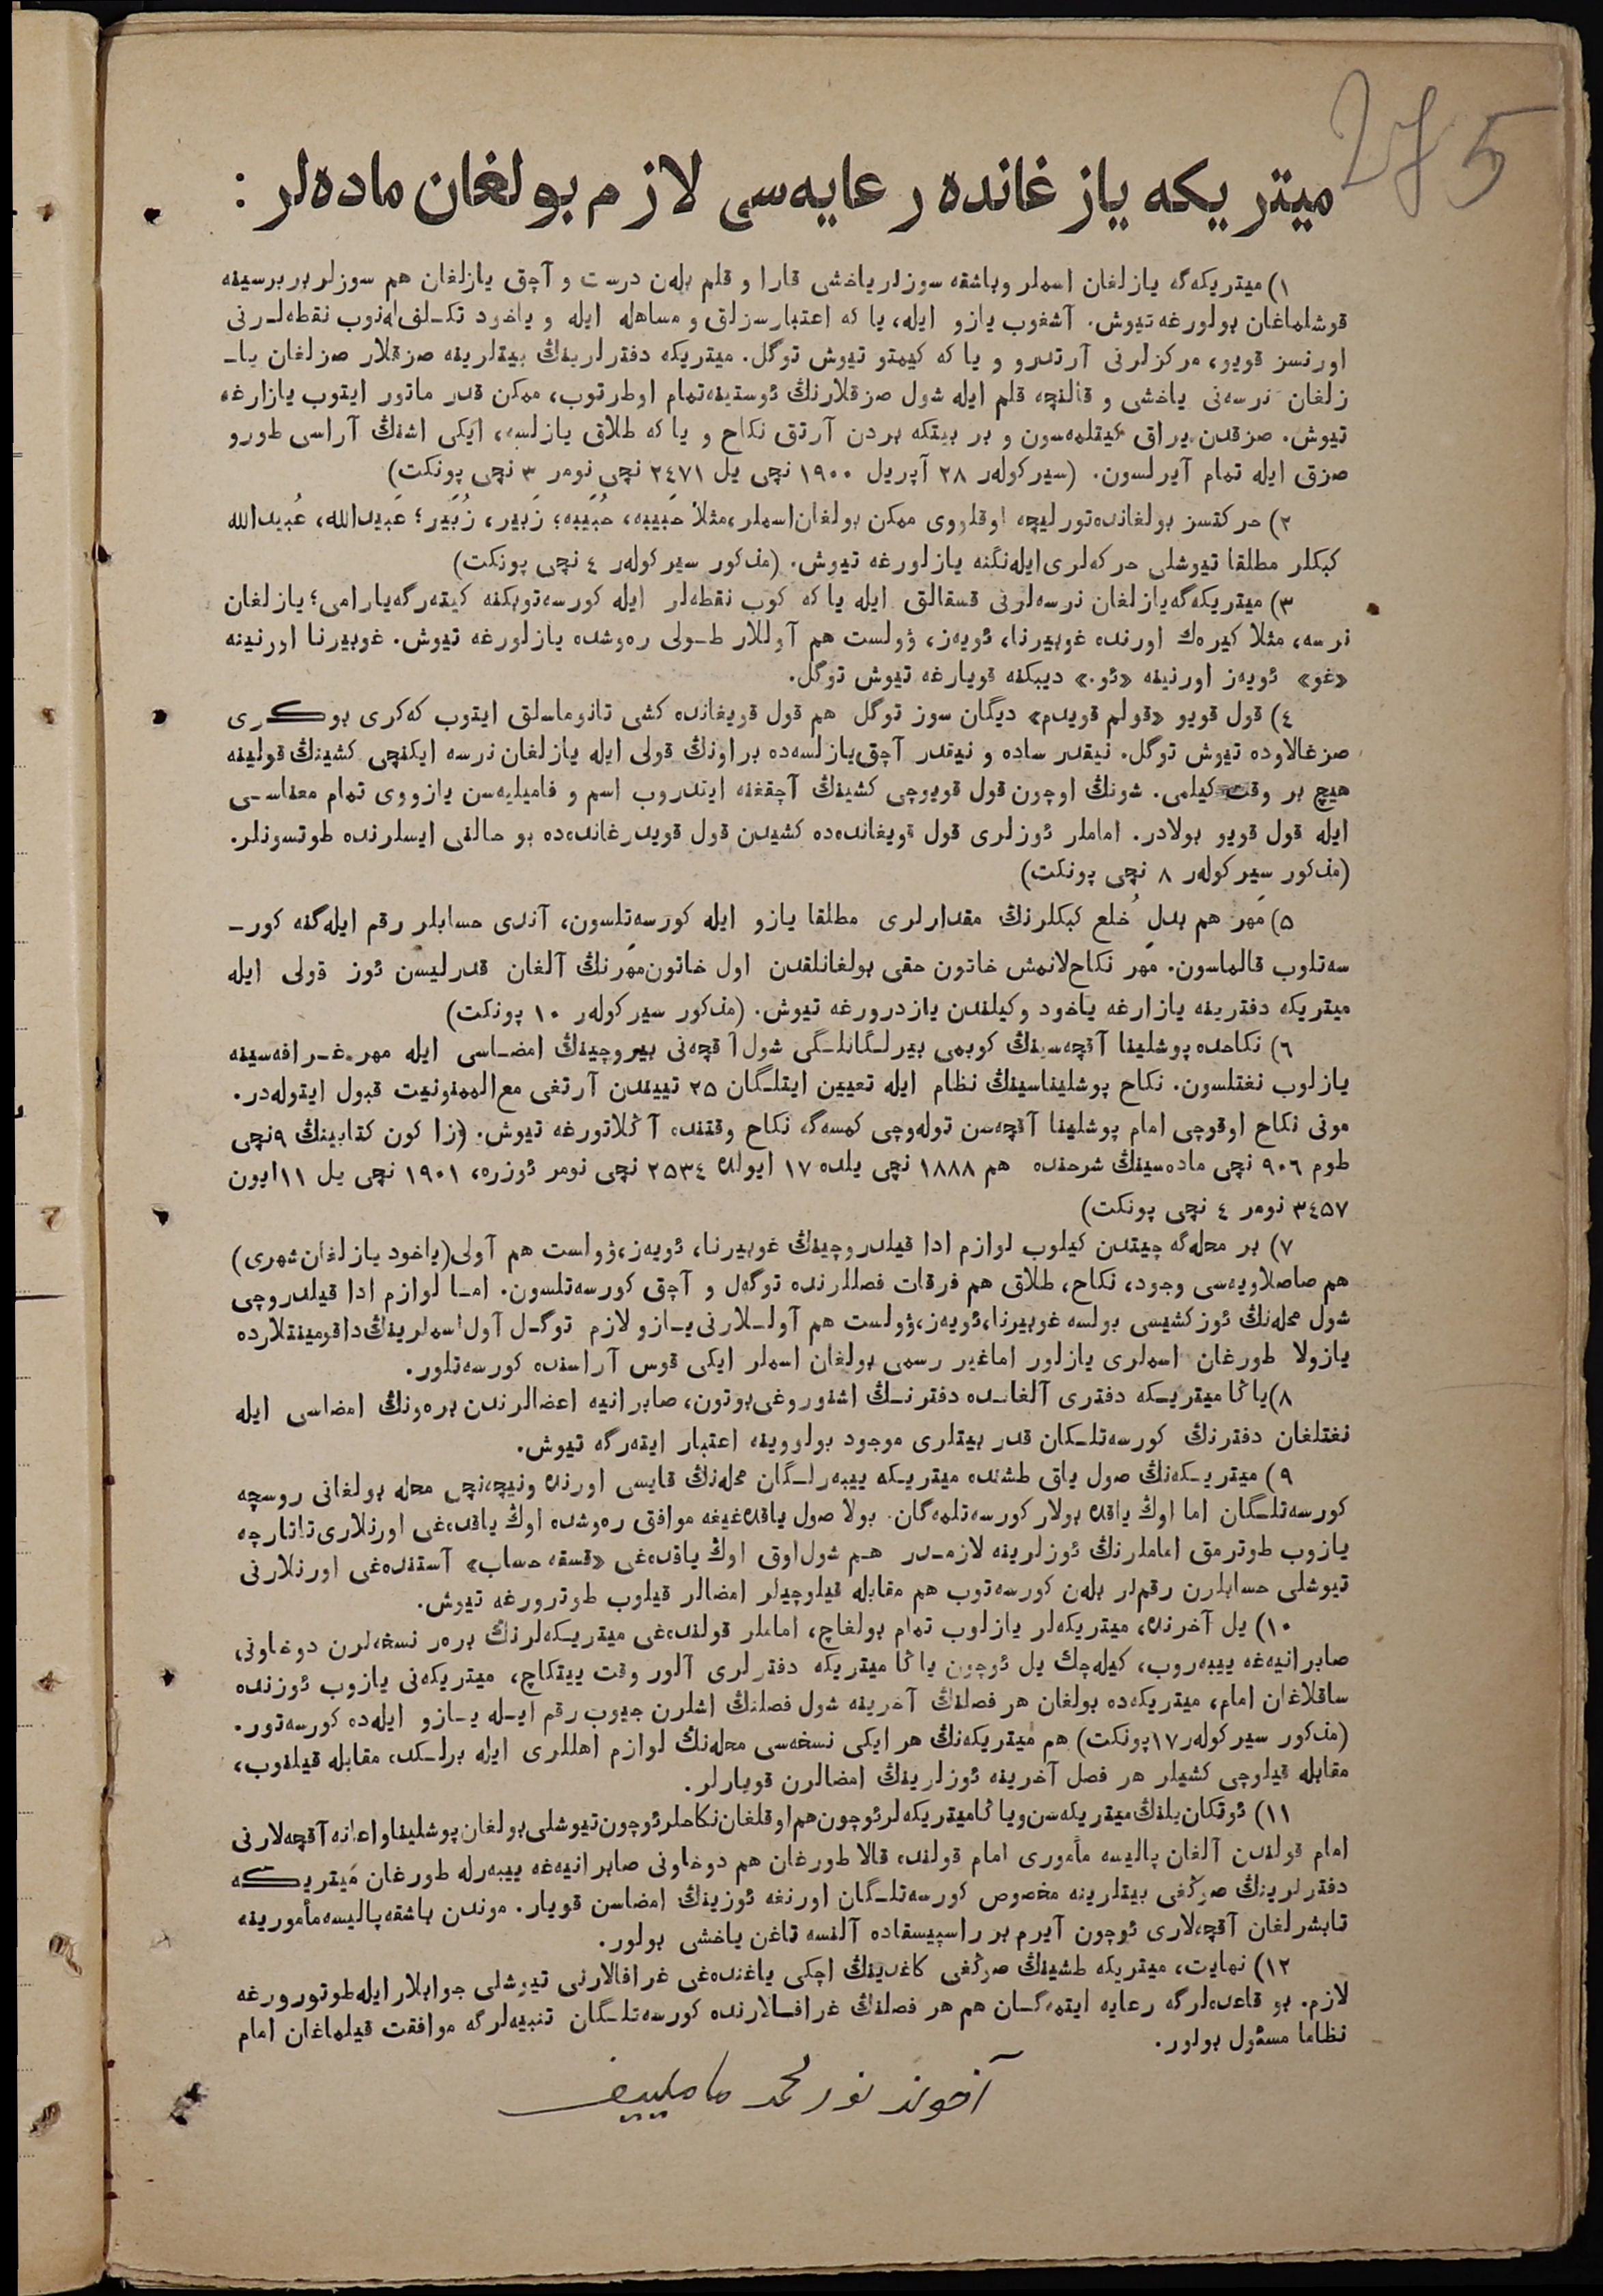 275
ميتريكه يازغانده رعايه‌سى لازم بولغان ماده‌لر :
١) ميتريكه‌گه يازلغان اسملر وباشقه سوزلر ياخشى قارا و قلم بله‌ن درست و آچق يازلغان هم سوزلر بربرسينه
قوشلماغان بولورغه تيوش. آشغوب يازو ايله، يا كه اعتبارسزلق و مساهله ايله و ياخود تكلف له‌نوب نقطه‌لرنى
اورنسز قويو، مركزلرنى آرتدرو و يا كه كيمتو تيوش توگل. ميتريكه دفترلرينڭ بيتلرينه صزقلار صزلغان يا-
زلغان نرسه‌نى ياخشى و قالنچه قلم ايله شول صزقلارنڭ ئوستينه‌تمام اوطرتوب، ممكن قدر ماتور ايتوب يازارغه
تيوش. صزقدن يراق كيتلمه‌سون و بر بيتكه بردن آرتق نكاح و يا كه طلاق يازلسه، ايكى اشنڭ آراسى طورو
صزق ايله تمام آيرلسون. (سيركوله‌ر ٢٨ آپريل ١٩٠٠ نچى يل ٢٤٧١ نچى نومر ٣ نچى پونكت)
٢) حركتسز بولغانده‌تورليچه اوقلووى ممكن بولغان‌اسملر،مثلا حَبيبه، حُبَيبه؛ زَبير، زُبَير؛ عَبيدالله، عُبيدالله
كبكلر مطلقا تيوشلى حركه‌لرى‌ايله‌نگنه يازلورغه تيوش. (مذكور سيركوله‌ر ٤ نچى پونكت)
٣) ميتريكه‌گه‌يازلغان نرسه‌لرنى قسقالق ايله يا كه كوب نقطه‌لر ايله كورسه‌توبكنه كيته‌رگه‌يارامى؛ يازلغان
نرسه، مثلا كيره‌ك اورنده غوبيرنا، ئويه‌ز، ۋولست هم آوللار طولى ره‌وشده يازلورغه تيوش. غوبيرنا اورنينه
«غو» ئويه‌ز اورنينه «ئو.» ديبكنه قويارغه تيوش توگل.
٤) قول قويو «قولم قويدم» ديگان سوز توگل هم قول قويغانده كشى تانوماسلق ايتوب كه‌كرى بوكرى
صزغالاوده تيوش توگل. نيقدر ساده و نيقدر آچق‌يازلسه‌ده براونڭ قولى ايله يازلغان نرسه ايكنچى كشينڭ قولينه
هيچ بر وقت كيلمى. شونڭ اوچون قول قويوچى كشينڭ آچقغنه ايتدروب اسم و فاميليه‌سن يازووى تمام معناسى
ايله قول قويو بولادر. اماملر ئوزلرى قول قويغانده‌ده كشيدن قول قويدرغانده‌ده بو حالنى ايسلرنده طوتسونلر.
(مذكور سيركوله‌ر ٨ نچى پونكت)
٥) مَهر هم بدل خُلع كبكلرنڭ مقدارلرى مطلقا يازو ايله كورسه‌تلسون، آندى حسابلر رقم ايله‌گنه كور-
سه‌تلوب قالماسون. مَهر نكاح‌لانمش خاتون حقى بولغانلقدن اول خاتون‌مَهرنڭ آلغان قدرليسن ئوز قولى ايله
ميتريكه دفترينه يازارغه ياخود وكيلندن يازدرورغه تيوش. (مذكور سيركوله‌ر ١٠ پونكت)
٦) نكاحده پوشلينا آقچه‌سينڭ كوبمى بيرلگانلگى شول آقچه‌نى بيروچينڭ امضاسى ايله مهر غرافه‌سينه
يازلوب نغتلسون. نكاح پوشليناسينڭ نظام ايله تعيين ايتلگان ٢٥ تييندن آرتغى مع‌الممنونيت قبول ايتوله‌در.
مونى نكاح اوقوچى امام پوشلينا آقچه‌سن توله‌وچى كمسه‌گه نكاح وقتنده آڭلاتورغه تيوش. (زاكون كتابينڭ ٩نچى
طوم ٩٠٦ نچى ماده‌سينڭ شرحنده هم ١٨٨٨ نچى يلده ١٧ ايولده ٢٥٣٤ نچى نومر ئوزره، ١٩٠١ نچى يل ١١ايون
٣٤٥٧ نومر ٤ نچى پونكت)
٧) بر محله‌گه چيتدن كيلوب لوازم ادا قيلدروچينڭ غوبيرنا، ئويه‌ز،ۋولست هم آولى(ياخود يازلغان‌شهرى)
هم صاصلاويه‌سى وجود، نكاح، طلاق هم فرقات فصللرنده توگه‌ل و آچق كورسه‌تلسون. اما لوازم ادا قيلدروچى
شول محله‌نڭ ئوزكشيسى بولسه غوبيرنا،ئويه‌ز،ۋولست هم آوللارنى‌يازو لازم توگل آول‌اسملرينڭ‌داقومينتلارده
يازولا طورغان اسملرى يازلور اماغير رسمى بولغان اسملر ايكى قوس آراسنده كورسه‌تلور.
٨)ياڭا ميتريكه دفترى آلغانده دفترنڭ اشنوروغى‌بوتون، صابرانيه اعضالرندن بره‌ونڭ امضاسى ايله
نغتلغان دفترنڭ كورسه‌تلگان قدر بيتلرى موجود بولووينه اعتبار ايته‌رگه تيوش.
٩) ميتريكه‌نڭ صول ياق طشنده ميتريكه ييبه‌رلگان محله‌نڭ قايسى اورنده ونيچه‌نچى محله بولغانى روسچه
كورسه‌تلگان اما اوڭ ياقده بولار كورسه‌تلمه‌گان. بولا صول ياقده‌غيغه موافق ره‌وشده اوڭ ياقده‌غى اورنلارى‌تاتارچه
يازوب طوترمق اماملرنڭ ئوزلرينه لازمدر هم شول‌اوق اوڭ ياقده‌غى «قسقه حساب» آستنده‌غى اورنلارنى
تيوشلى حسابلرن رقملر بله‌ن كورسه‌توب هم مقابله قيلوچيلر امضالر قيلوب طوترورغه تيوش.
١٠) يل آخرنده، ميتريكه‌لر يازلوب تمام بولغاچ، اماملر قولنده‌غى ميتريكه‌لرنڭ بره‌ر نسخه‌لرن دوخاونى
صابرانيه‌غه ييبه‌روب، كيله‌چك يل ئوچون ياڭا ميتريكه دفترلرى آلور وقت ييتكاچ، ميتريكه‌نى يازوب ئوزنده
ساقلاغان امام، ميتريكه‌ده بولغان هر فصلنڭ آخرينه شول فصلنڭ اشلرن جيوب رقم ايله يازو ايله‌ده كورسه‌تور.
(مذكور سيركوله‌ر ١٧پونكت) هم ميتريكه‌نڭ هر ايكى نسخه‌سى محله‌نڭ لوازم اهللرى ايله برلكده مقابله قيلنوب،
مقابله قيلوچى كشيلر هر فصل آخرينه ئوزلرينڭ امضالرن قويارلر.
١١) ئوتكان‌يلنڭ‌ميتريكه‌سن‌وياڭاميتريكه‌لرئوچون‌هم‌اوقلغان‌نكاحلرئوچون‌تيوشلى‌بولغان‌پوشليناواعانه‌آقچه‌لارنى
امام قولندن آلغان پاليسه مأمورى امام قولنده قالا طورغان هم دوخاونى صابرانيه‌غه ييبه‌رله طورغان ميتريكه
دفترلرينڭ صوڭغى بيتلرينه مخصوص كورسه‌تلگان اورنغه ئوزينڭ امضاسن قويار. موندن باشقه‌پاليسه‌مأمورينه
تابشرلغان آقچه‌لارى ئوچون آيرم بر راسپيسقاده آلنسه تاغن ياخشى بولور.
١٢) نهايت، ميتريكه طشينڭ صوڭغى كاغدينڭ اچكى ياغنده‌غى غرافالارنى تيوشلى جوابلارايله‌طوتورورغه
لازم. بو قاعده‌لرگه رعايه ايتمه‌گان هم هر فصلنڭ غرافالارنده كورسه‌تلگان تنبيه‌لرگه موافقت قيلماغان امام
نظاما مسئول بولور.
آخوند نورمحمد ماملييف